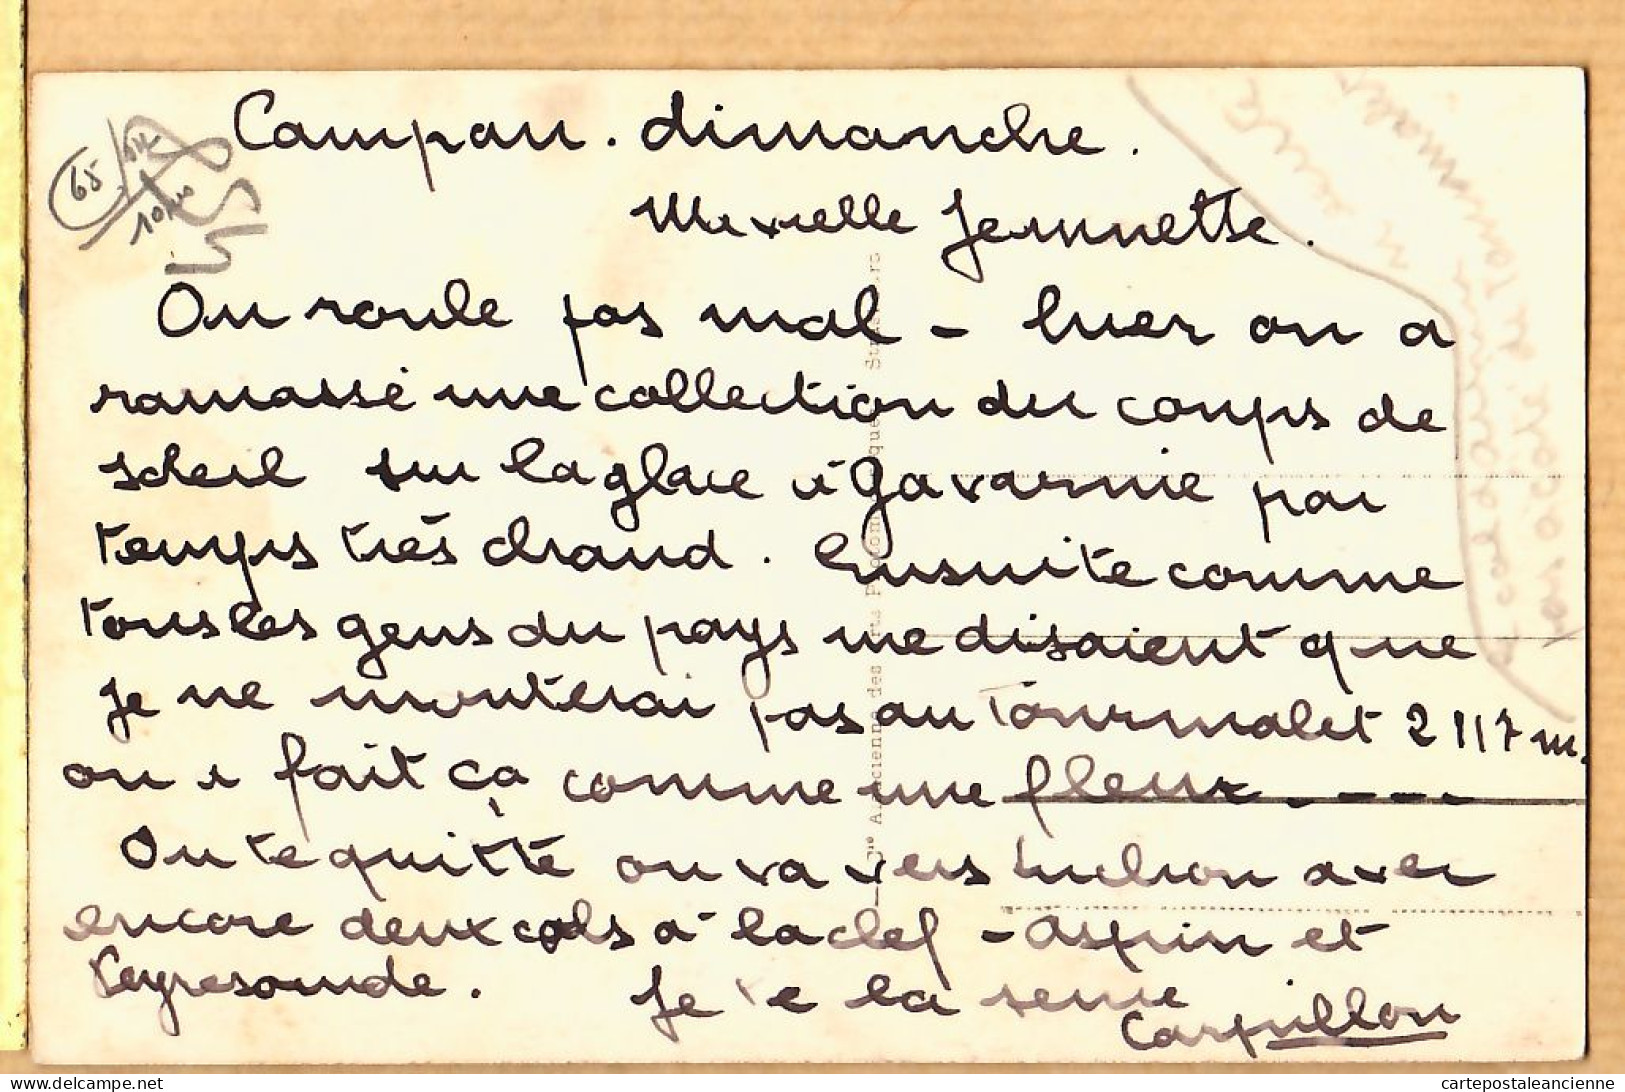 Campan. dimanche.
65
Mirielle Jeannette.
On roule pas mal - hier on a
ramassé une collection du coups de
soleil sur la glace à Gavarnie par
temps très chaud. Ensuite comme
tous les gens du pays me disaient que
je ne monterai pas au Tourmalet 2117 m.
on a fait ça comme une fleur. ---
On te quitte on va vers Luchon avec
encore deux cols à la clef - Aspin et
Peyresourde. Je te la serre
Carpillon
cartepostaleancienne
delcampe.net